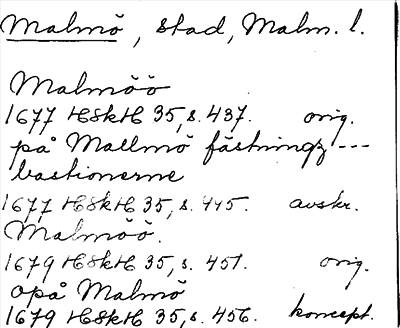 Malmö, stad, Malm. l.
Malmöö
1677 HSkH 35, s. 437. orig.
på Mallmö fästningz ---
bastionerne
1677 HSkH 35, s. 445. avskr.
Malmöö.
1679 HSkH 35, s. 451. orig.
opå Malmö
1679 HSkH 35, s. 456. koncept.